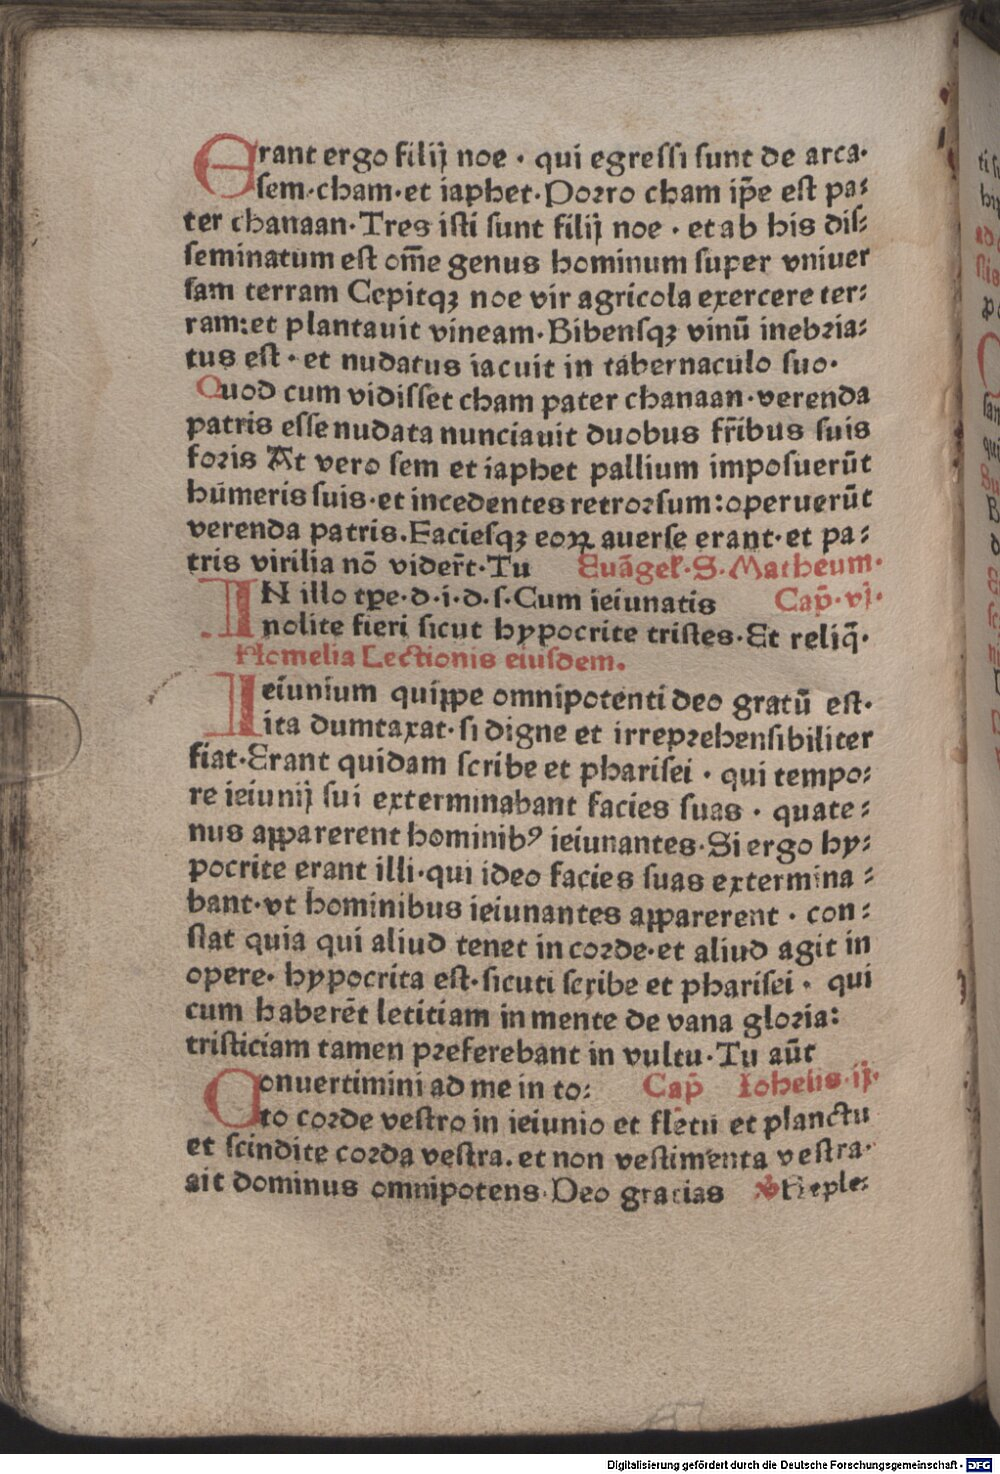 Erant ergo filij noe · qui egressi sunt de arca·
sem·cham·et iaphet·Porro cham ip̄e est pa⸗
ter chanaan·Tres isti sunt filij noe · et ab his dis⸗
seminatum est om̄e genus hominum super vniuer
sam terram Cepitqꝫ noe vir agricola exercere ter⸗
ram:et plantauit vineam·Bibensqꝫ vinū inebria⸗
tus est · et nudatus iacuit in tabernaculo suo·
Quod cum vidisset cham pater chanaan·verenda
patris esse nudata nunciauit duobus fr̄ibus suis
foris At vero sem et iaphet pallium imposuerūt
humeris suis·et incedentes retrorsum:operuerūt
verenda patris.Faciesqꝫ eoꝝ auerse erant·et pa⸗
tris virilia nō vider̄t·Tu Euāgel̄·S·Matheum·
IN illo tp̄e·d·i·d·s·Cum ieiunatis Cap̄·vj·
nolite fieri sicut hypocrite tristes·Et reliq̄·
Homelia Lectionis eiusdem.
Ieiunium quippe omnipotenti deo gratū est·
ita dumtaxat·si digne et irreprehensibiliter
fiat·Erant quidam scribe et pharisei · qui tempo⸗
re ieiunij sui exterminabant facies suas · quate⸗
nus apparerent hominibꝰ ieiunantes·Si ergo hy⸗
pocrite erant illi·qui ideo facies suas extermina⸗
bant·vt hominibus ieiunantes apparerent · con⸗
stat quia qui aliud tenet in corde·et aliud agit in
opere· hypocrita est·sicuti scribe et pharisei · qui
cum haberēt letitiam in mente de vana gloria:
tristiciam tamen preferebant in vultu·Tu aūt
Conuertimini ad me in to⸗ Cap̄ Iohelis·ij·
to corde vestro in ieiunio et fletu et planctu
et scindite corda vestra.et non vestimenta vestra·
ait dominus omnipotens·Deo gracias ℣ Reple⸗
Digitalisierung gefördert durch die Deutsche Forschungsgemeinschaft - DFG